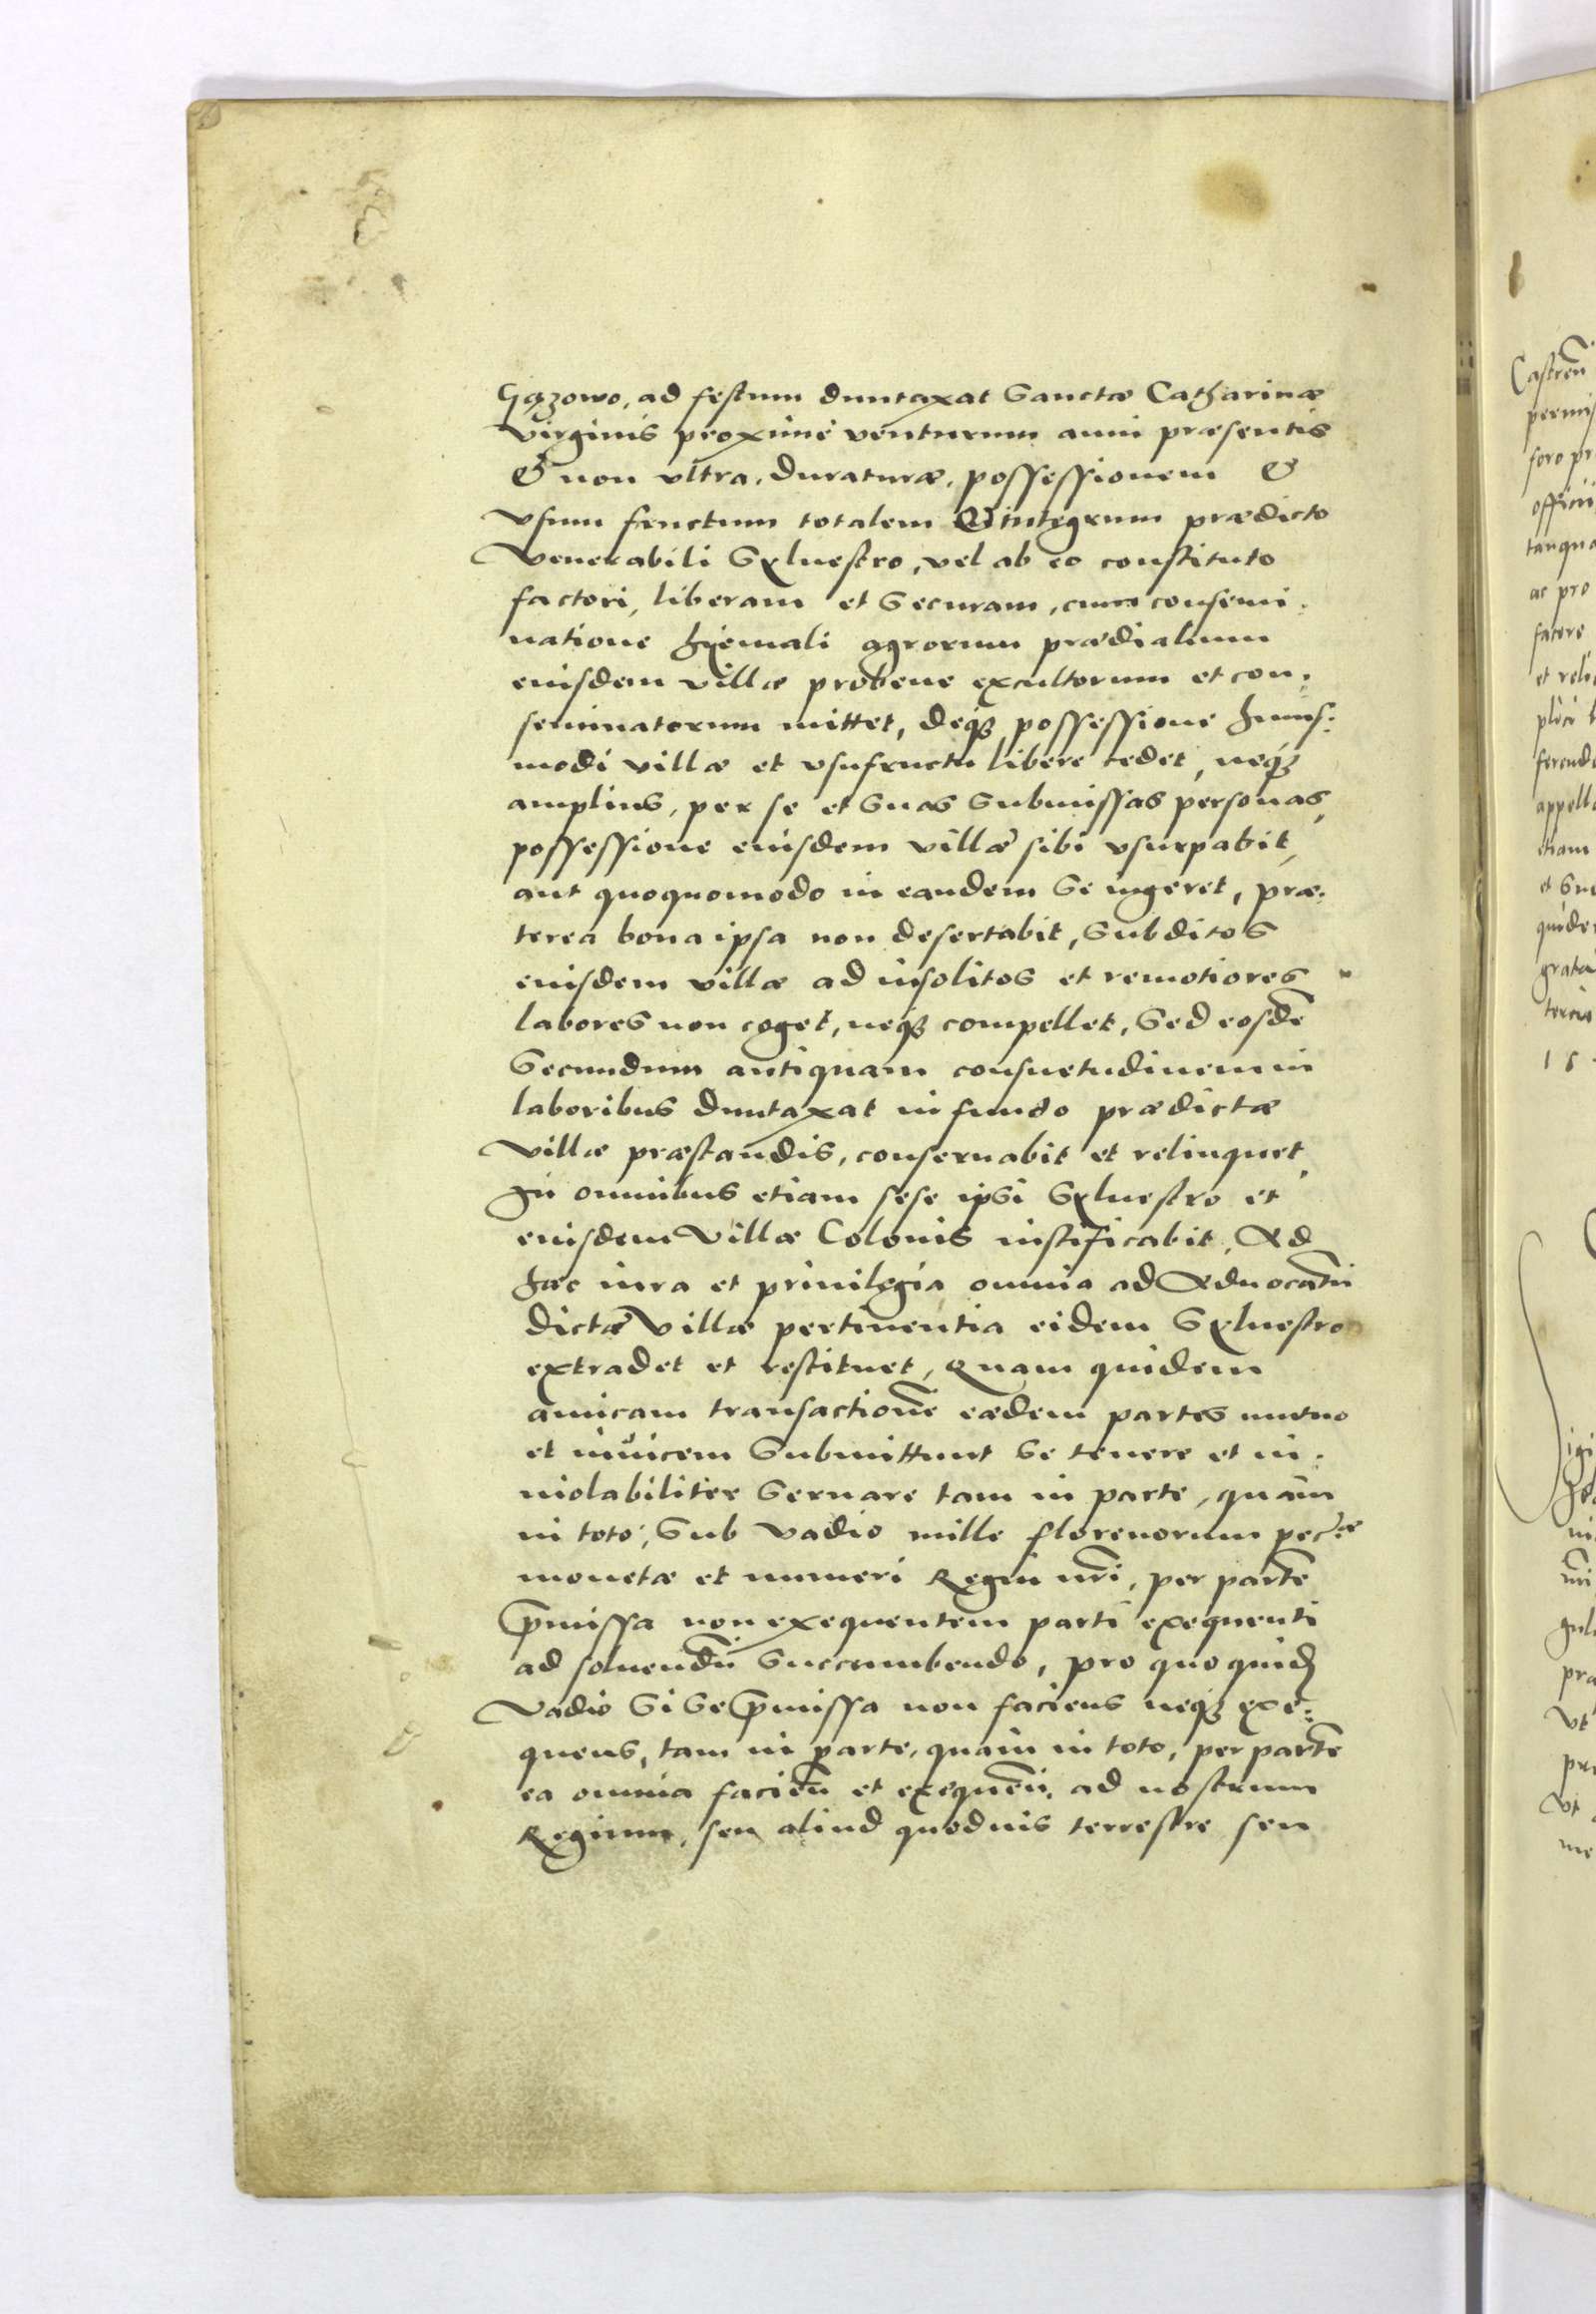 Gązowo, ad festum duntaxat Sanctæ Catharinæ
Virginis proximè venturum anni præsentis
& non vltra, duraturæ, possessionem &
vsum fructum totalem & integrum prædicto
Venerabili Syluestro, vel ab eo constituto
factori, liberam et securam, cum consemi:
natione hyemali agrorum prædialium
eiusdem villæ probene excultorum et con:
seminatorum mittet, deqз possessione huius:
modi villæ et vsufructu libere cedet, neqз
amplius, per se et suas submissas personas,
possessione eiusdem villæ sibi vsurpabit,
aut quoquomodo in eandem se ingeret, præ:
terea bona ipsa non desertabit, subditos
eiusdem villæ ad insolitos et remotiores
labores non coget, neqз compellet, sed eosdē
secundum antiquam consuetudinem in
laboribus duntaxat in fundo prædictæ
villæ præstandis, conseruabit et relinquet,
In omnibus etiam sese ipsi Syluestro et
eiusdem Villæ Colonis iustificabit, Ad
hæc iura et priuilegia omnia ad Aduocatiā
dictæ Villæ pertinentia eidem Syluestro
extradet et restituet, Quam quidem
amicam transactionē eædem partes mutuo
et inuicem submittunt se tenere et in:
uiolabiliter seruare tam in parte, quàm
in toto, sub vadio mille florenorum pecæ
monetæ et numeri Regni nr̄i, per partē
p̄missa non exequentem parti exequenti
ad soluendū succumbendo, pro quo quid
Vadio si se p̄missa non faciens neqз exe:
quens, tam in parte, quam in toto, per partē
ea omnia faciēn et exequēn, ad nostrum
Regium, seu aliud quoduis terrestre seu
Castreñ
foro pr
officii
tanqua
ac pro
facere
et reli
appell
etiam
et su
grata
pra
Vt
Vt
me